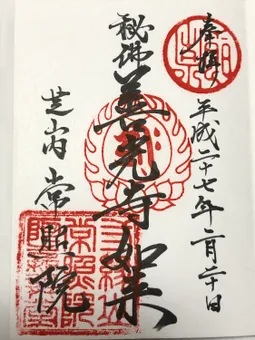 奉拝
平成二十七年二月二十日
秘佛
善光寺如来
芝山内 常照院